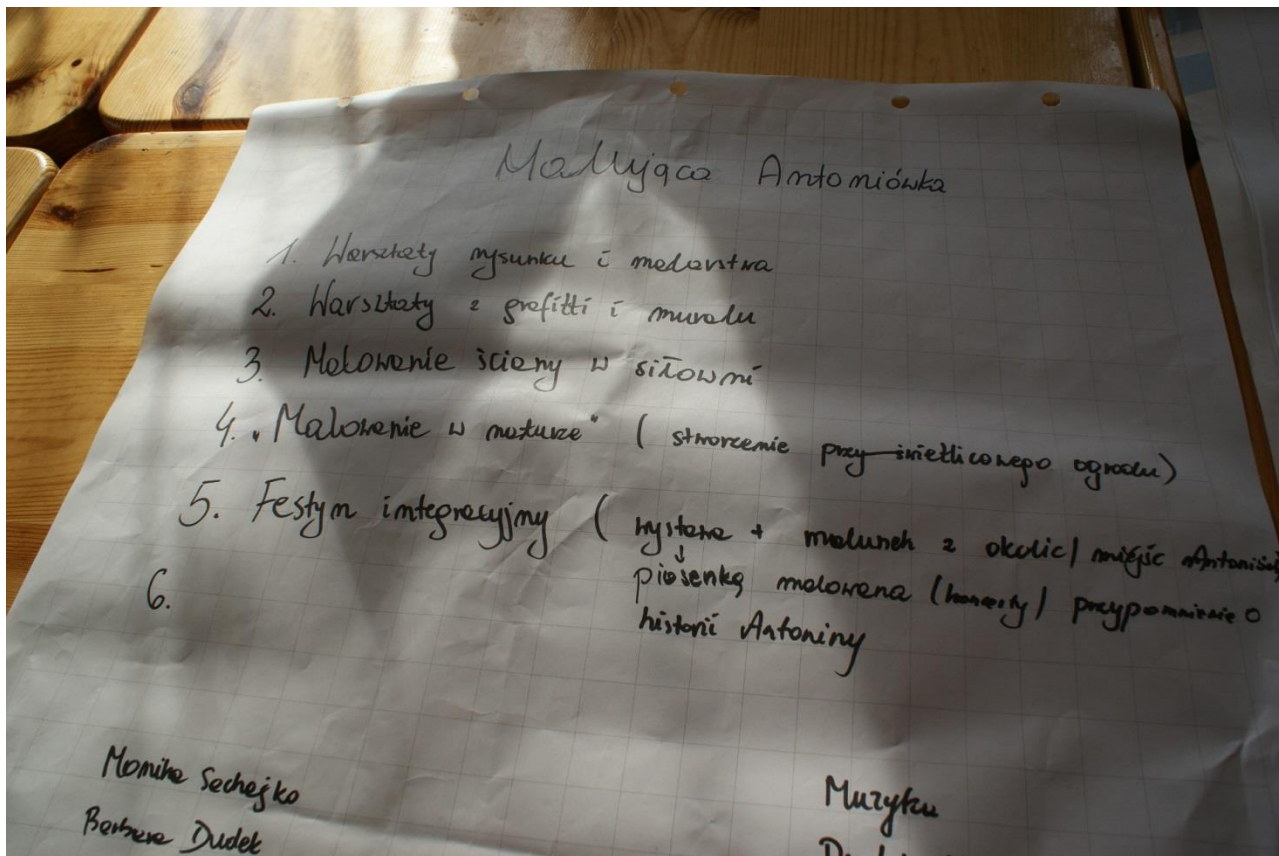 Malująca Antoniówka
1. Warsztaty rysunku i malarstwa
2. Warsztaty z grafitti i muralu
3. Malowanie ściany w siłowni
4. „Malowanie w naturze" (stworzenie przy świetlicowego ogrodu)
5. Festyn integracyjny (wystawa + malunek z okolic / miejsc
piosenką malowana (koncerty) przypomnienie o
historii Antoniny
6.
Monika Sachajko
Barbara Dudek
Muzyku